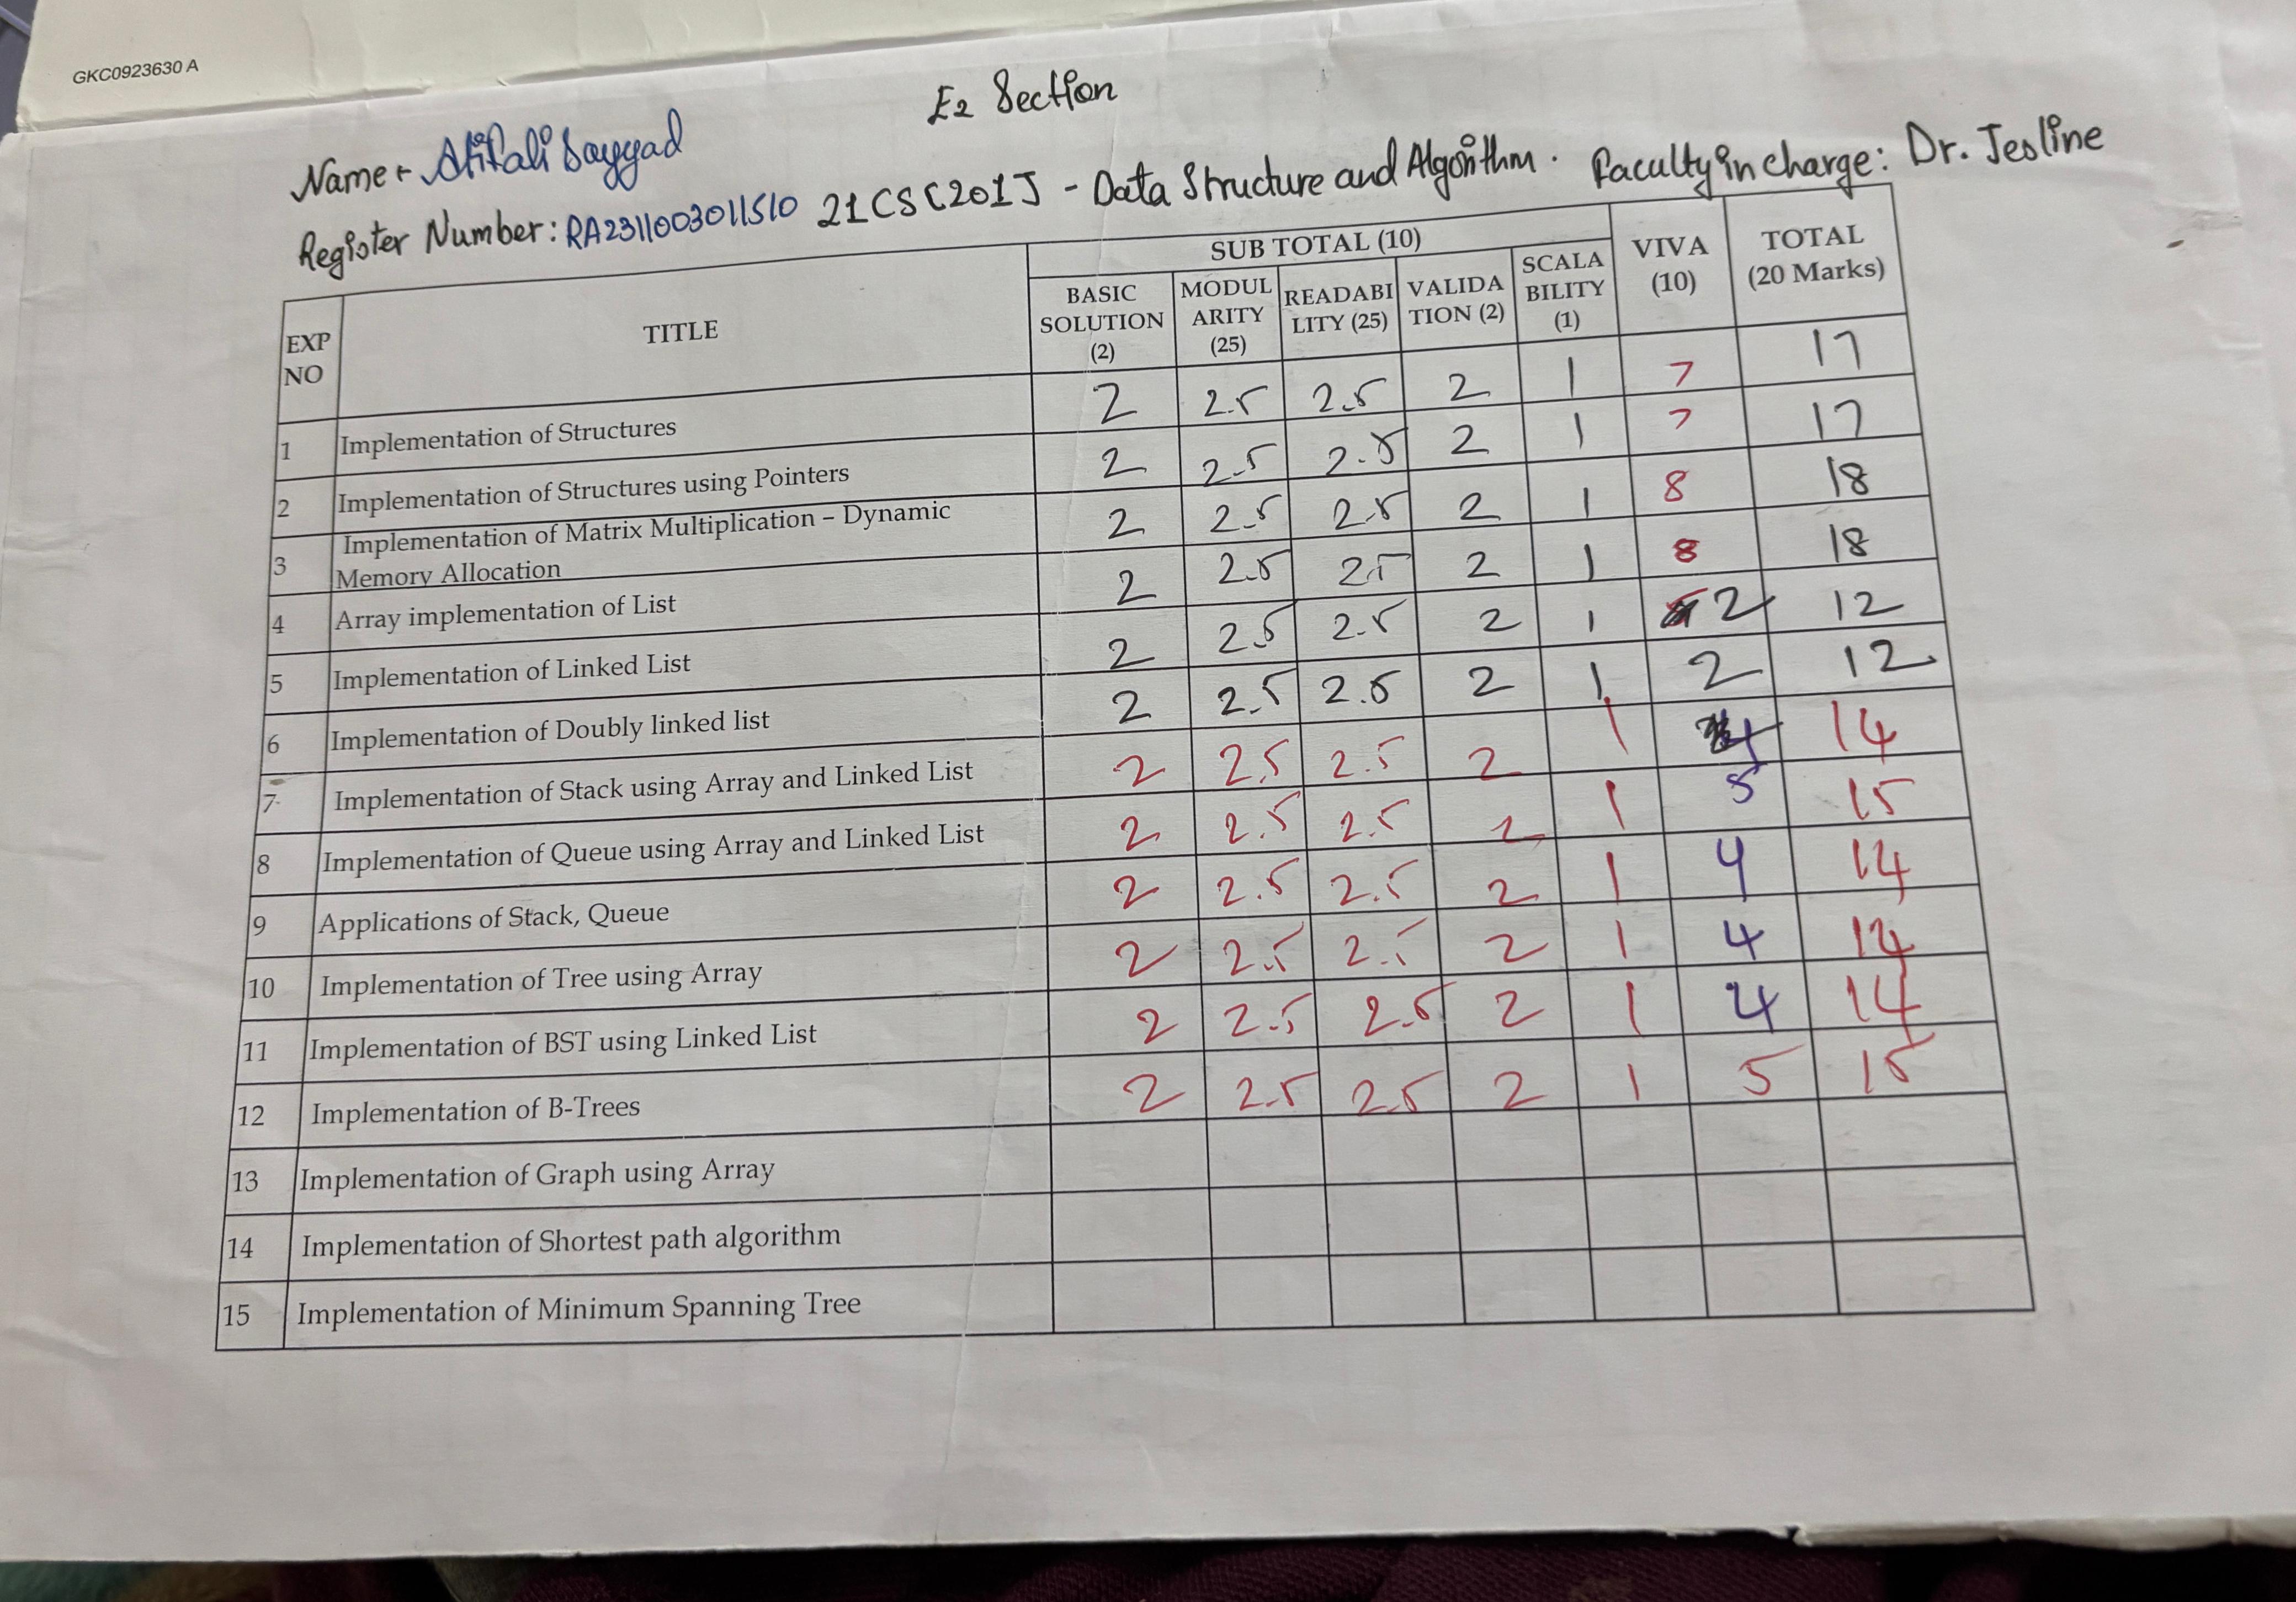 GKC0923630 A
E2 Section
Name:- Atifali Sayyad
Register Number: RA2311003011510 21CSC201J - Data Structure and Algorithm. Faculty in charge: Dr. Jesline
EXP NO TITLE SUB TOTAL (10) VIVA (10) TOTAL (20 Marks)
BASIC SOLUTION (2) MODUL ARITY (25) READABI LITY (25) VALIDA TION (2) SCALA BILITY (1)
1 Implementation of Structures 2 2.5 2.5 2 1 7 17
2 Implementation of Structures using Pointers 2 2.5 2.5 2 1 7 17
3 Implementation of Matrix Multiplication – Dynamic Memory Allocation 2 2.5 2.5 2 1 8 18
4 Array implementation of List 2 2.5 2.5 2 1 8 18
5 Implementation of Linked List 2 2.5 2.5 2 1 2 12
6 Implementation of Doubly linked list 2 2.5 2.5 2 1 2 12
7 Implementation of Stack using Array and Linked List 2 2.5 2.5 2 1 4 14
8 Implementation of Queue using Array and Linked List 2 2.5 2.5 2 1 5 15
9 Applications of Stack, Queue 2 2.5 2.5 2 1 4 14
10 Implementation of Tree using Array 2 2.5 2.5 2 1 4 14
11 Implementation of BST using Linked List 2 2.5 2.5 2 1 4 14
12 Implementation of B-Trees 2 2.5 2.5 2 1 5 15
13 Implementation of Graph using Array
14 Implementation of Shortest path algorithm
15 Implementation of Minimum Spanning Tree